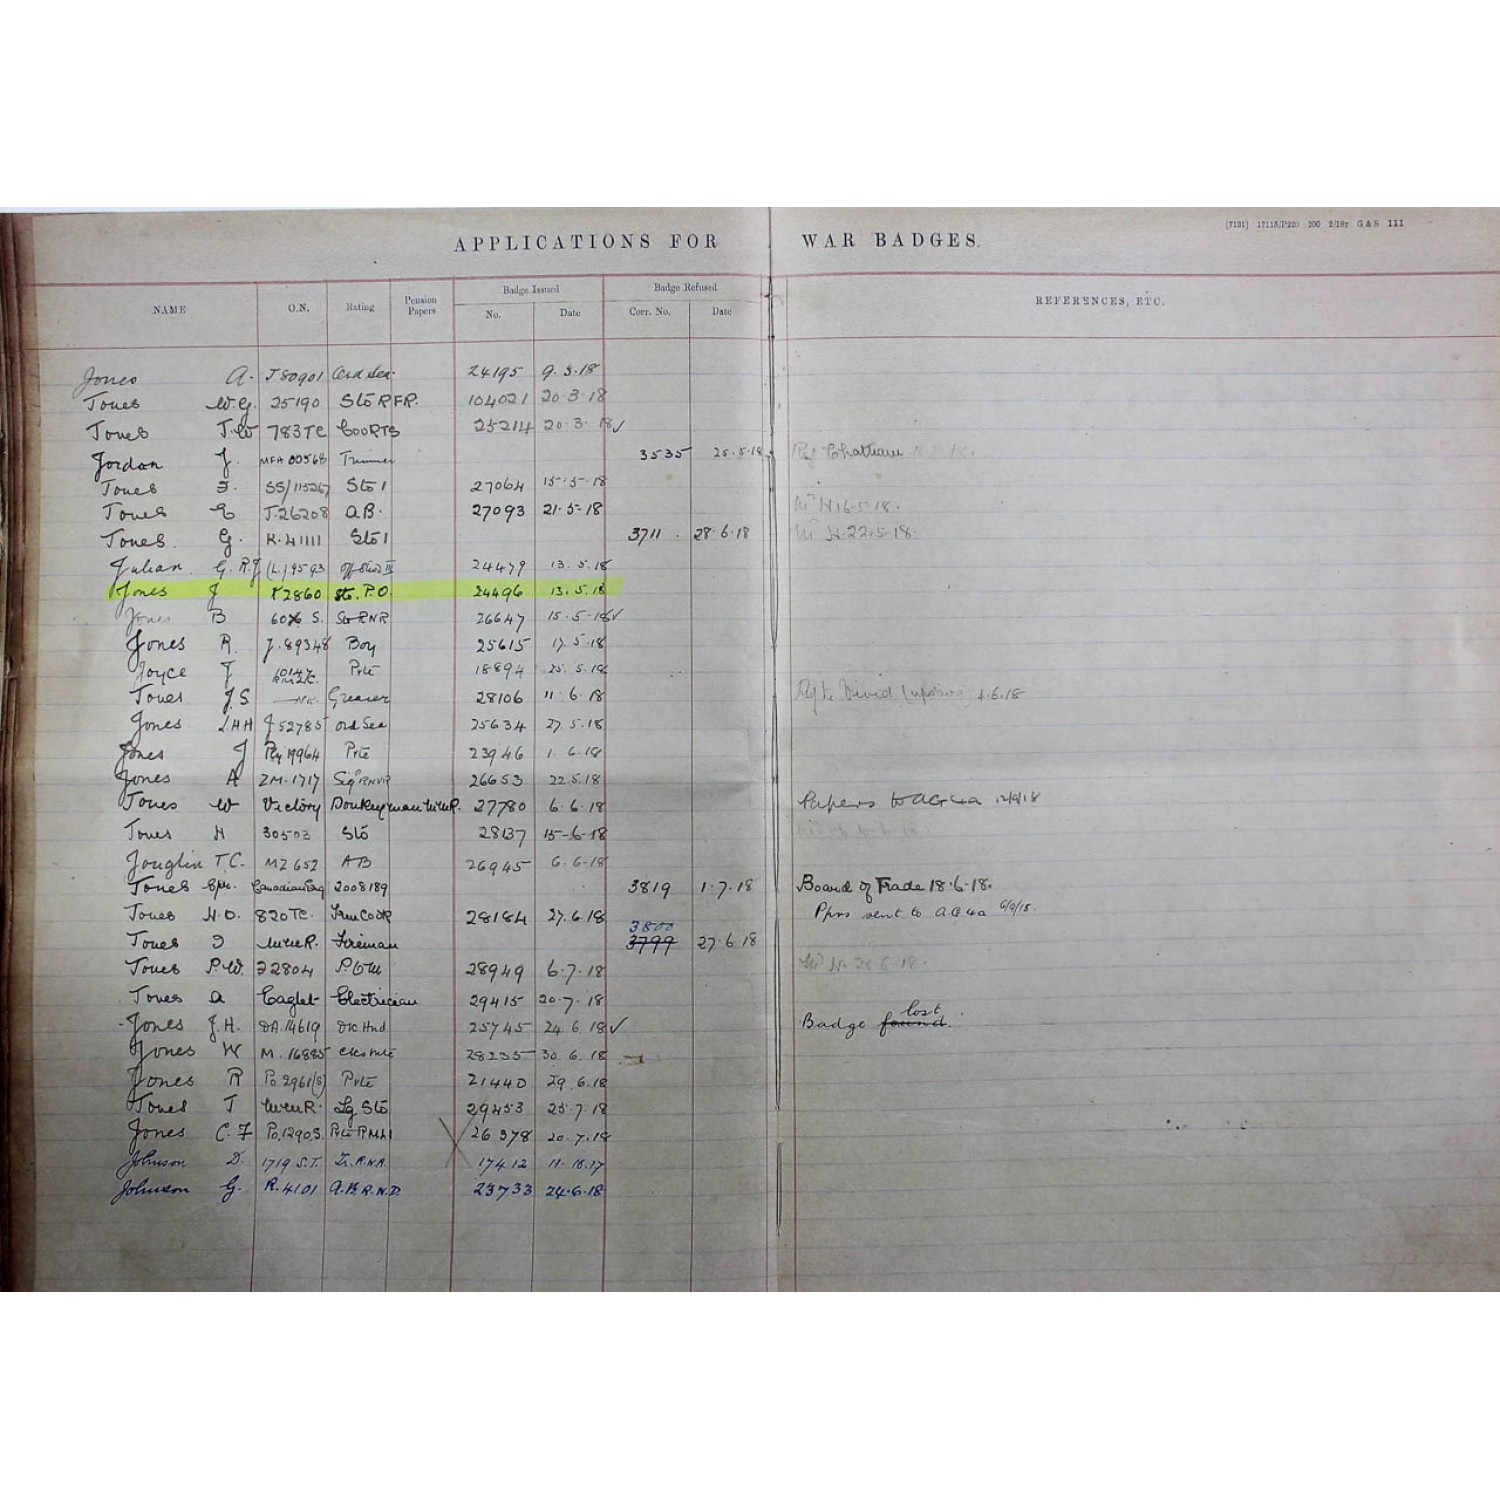 (7131) 17115/P220 200 2/18r G & S 111
APPLICATIONS FOR WAR BADGES.
NAME O.N. Rating Pension Papers Badge Issued No. Date Badge Refused Corr. No. Date REFERENCES, ETC.
Jones A. J80901 Ord Sea. 24195 9.3.18
Jones W.G. 25190 Sto RFR. 104021 20.3.18
Jones J.W 783TC CookRTS 25214 20.3.18 ✓
Jordon J. MFA 00568 Trimmer 3535 25.5.18 Chatham
Jones J. SS/115267 Sto 1 27064 15.5.18
Jones E J.26208 A.B. 27093 21.5.18 Mr H 16.5.18.
Jones. G. K.41111 Sto 1 3711. 28.6.18 Mr H.22.5.18.
Julian. G.R.J (L.)9593 Off Stwd III 24479 13.5.18
Jones J K2860 Sto. P.O. 24496 13.5.18
Jones B S. Sto RNR 26647 15.5.18 ✓
Jones R. J.89348 Boy 25615 17.5.18
Joyce J Pte 18894 25.5.18
Jones J.S. Greaser 28106 11.6.18 Vivid 1.6.18
Jones J.HH J52785 Ord Sea 25634 27.5.18
Jones J Ply 19964 Pvte 23946 1.6.18
Jones A ZM.1717 Sig RNVR 26653 22.5.18
Jones W Victory Donkeyman M.M.R. 27780 6.6.18 Papers to AG4a 12/9/18
Jones H 30503 Sto 28137 15-6-18
Joughin T.C. MZ 652 AB 26945 6.6.18
Jones Spr. Canadian Eng 2008189 3819 1.7.18 Board of Trade 18.6.18.
Jones H.O. 820TC. Cook 28184 27.6.18 Pprs sent to A.G 4a 6/9/18.
Jones J M.M.R. Fireman 3800 3799 27.6.18
Jones P.W. J2804 P.O.M 28949 6.7.18
Jones A Eaglet Electrician 29415 20.7.18
Jones J.H. DA.14619 Dk Hnd 25745 24.6.18 ✓ Badge found lost.
Jones W M.16885 28235 30.6.18
Jones R Po 2961(S) Pvte 21440 29.6.18
Jones T M.M.R. Lg Sto 29453 25.7.18
Jones C.F Po,1290S. Pvte RMLI 26378 20.7.18
Johnson D. 1719 S.T. Tr.R.N.R. 17412 11.10.17
Johnson G. R.4101 A.B.R.N.D. 23733 24.6.18